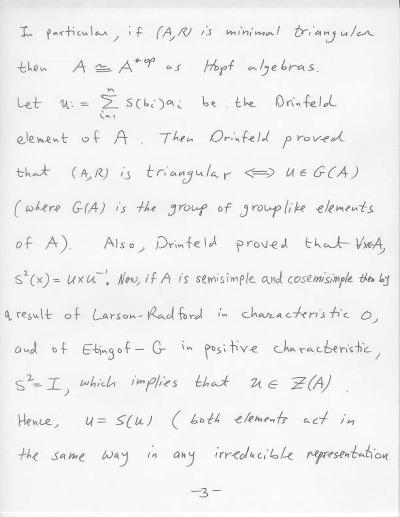 In particular, if (A,R) is minimal triangular
then A ≅ A*op as Hopf algebras.
Let u := ∑ⁿᵢ₌₁ S(bᵢ)aᵢ be the Drinfeld
element of A. Then Drinfeld proved
that (A,R) is triangular ⟺ u ∈ G(A)
(where G(A) is the group of grouplike elements
of A). Also, Drinfeld proved that ∀x∈A,
S²(x) = uxu⁻¹. Now, if A is semisimple and cosemisimple then by
a result of Larson-Radford in characteristic 0,
and of Etingof-G in positive characteristic,
S² = I, which implies that u ∈ Z(A).
Hence, u = S(u) (both elements act in
the same way in any irreducible representation
-3-